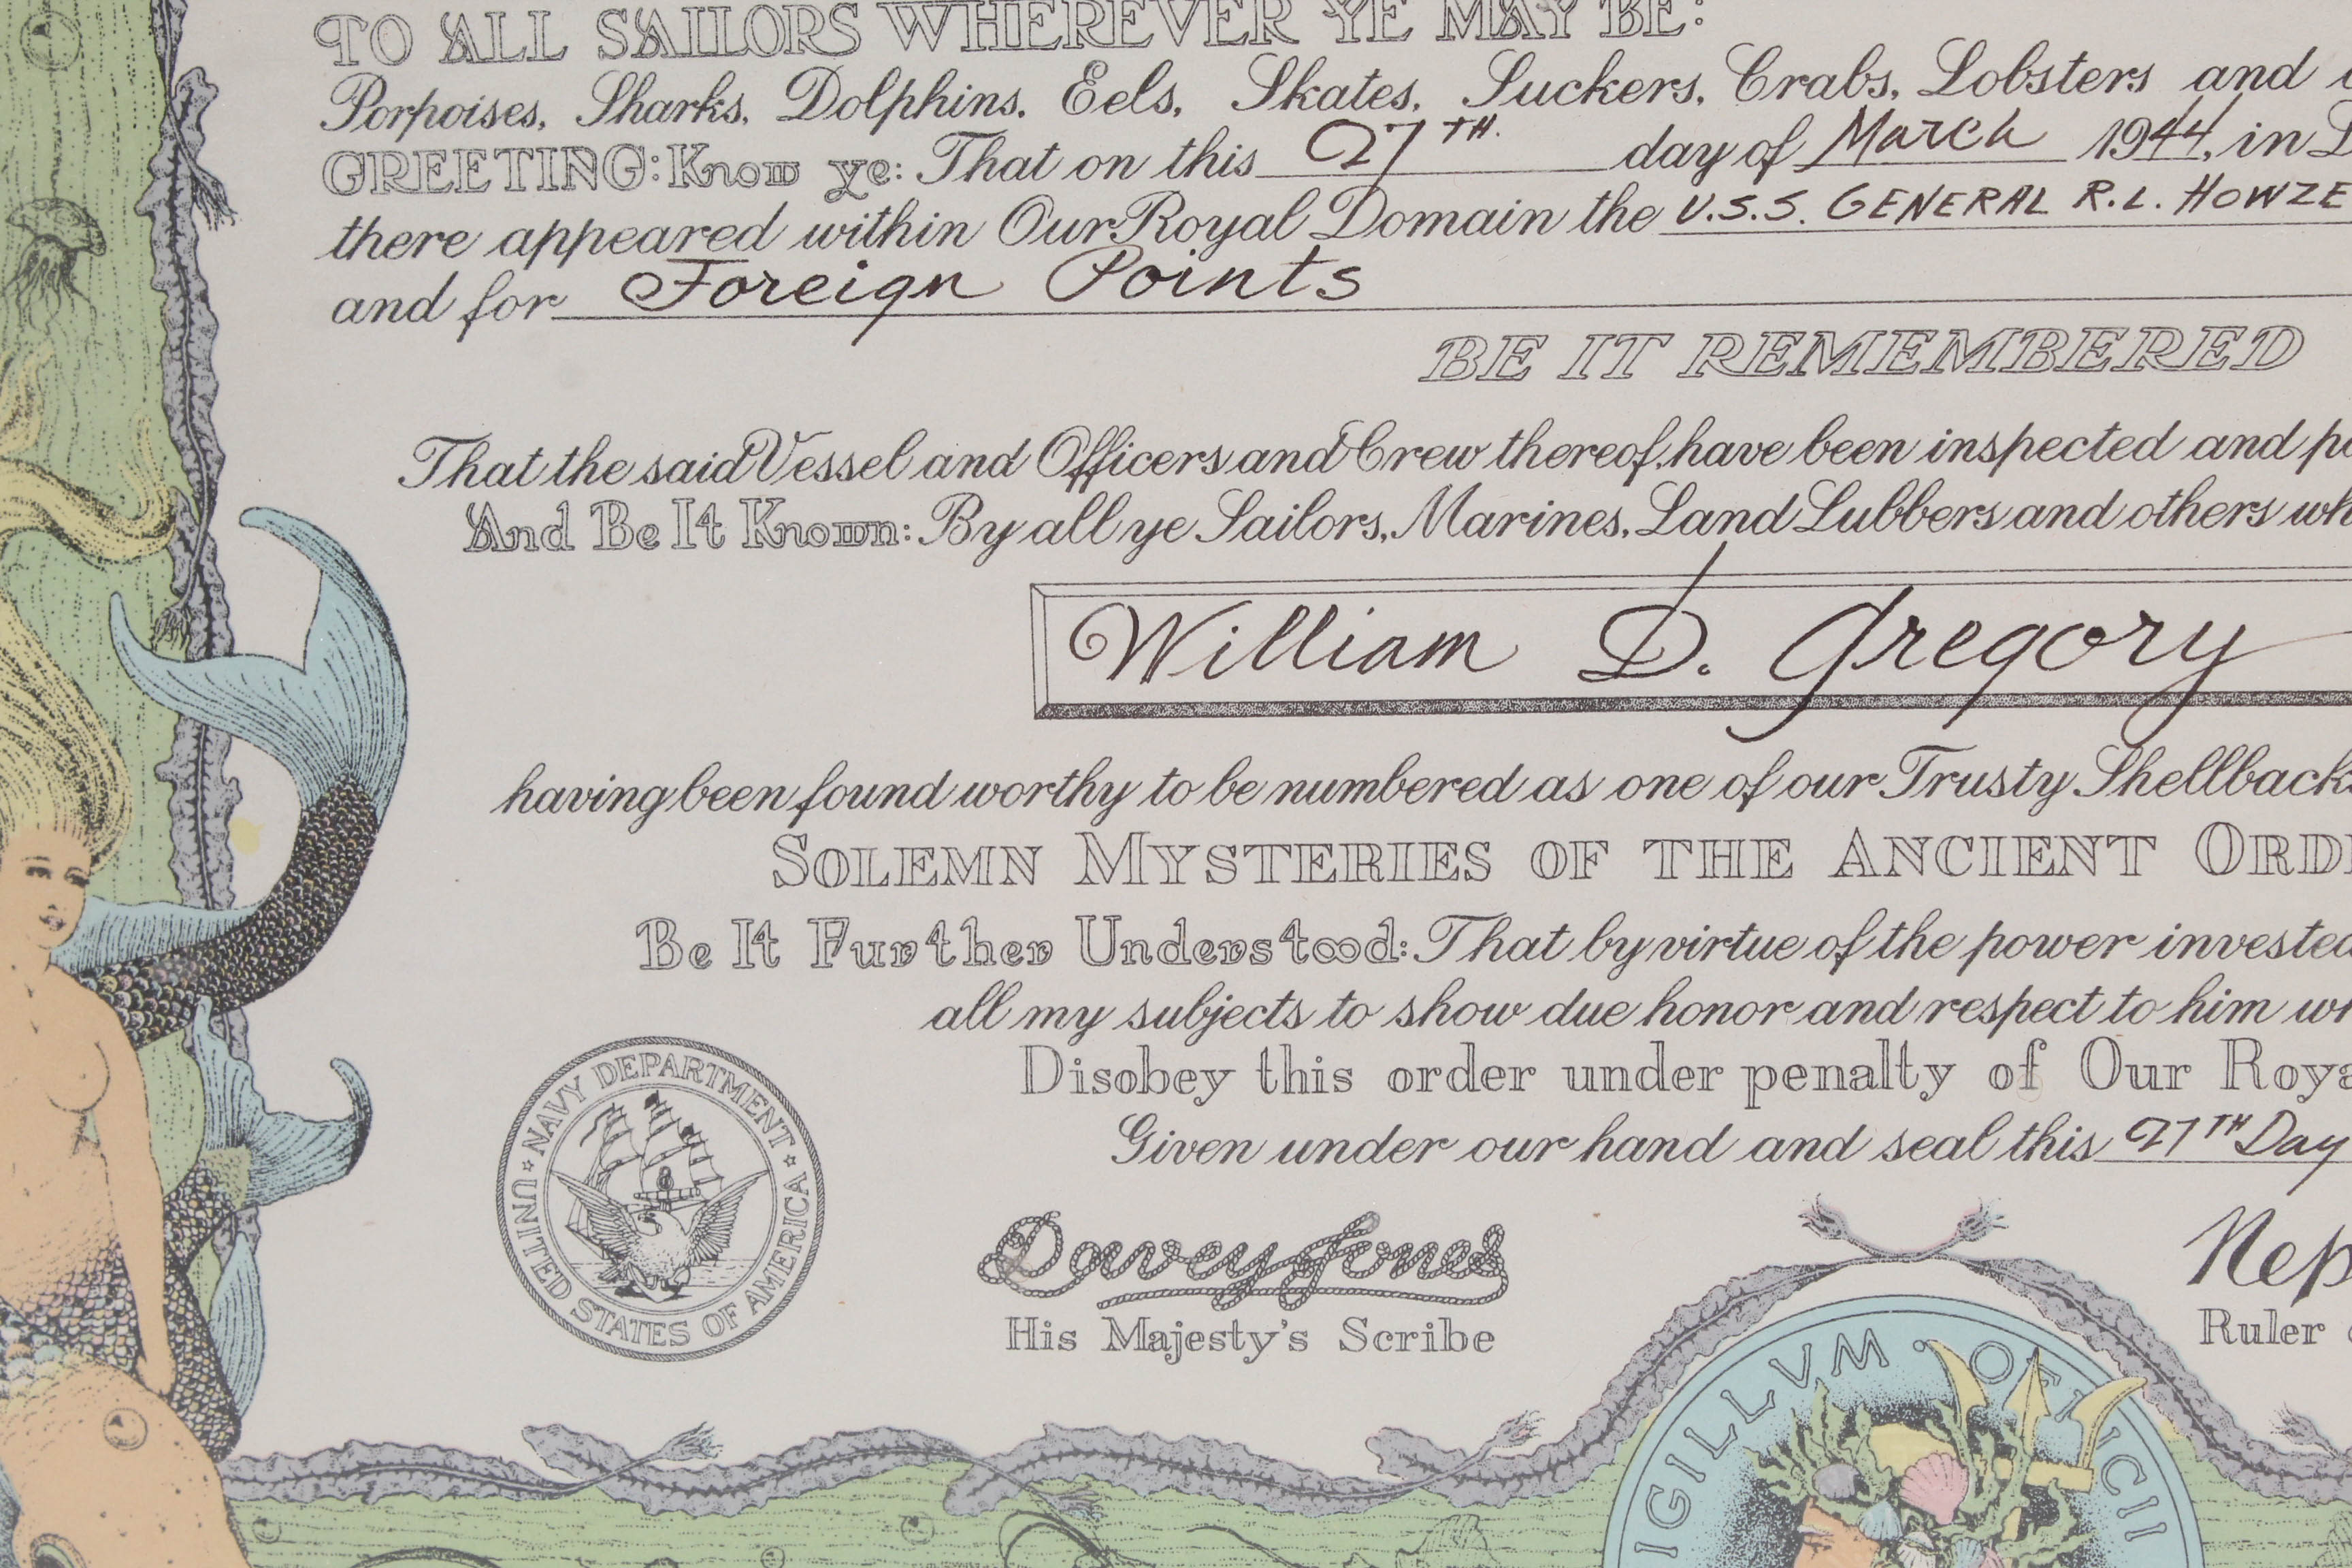 TO ALL SAILORS WHEREVER YE MAY BE:
Porpoises, Sharks, Dolphins, Eels, Skates, Suckers, Crabs, Lobsters and
GREETING: Know ye: That on this 27TH. day of March 1944, in
there appeared within Our Royal Domain the U.S.S. GENERAL R.L. HOWZE
and for Foreign Points
BE IT REMEMBERED
That the said Vessel and Officers and Crew thereof, have been inspected and
And Be It Known: By all ye Sailors, Marines, Land Lubbers and others
William D. Gregory
having been found worthy to be numbered as one of our Trusty Shellbacks
SOLEMN MYSTERIES OF THE ANCIENT
Be It Further Understood: That by virtue of the power invested
all my subjects to show due honor and respect to him
Disobey this order under penalty of Our
Given under our hand and seal this 27TH Day
NAVY DEPARTMENT
UNITED STATES OF AMERICA
Davey Jones
His Majesty's Scribe
Nep
Ruler
SIGILLVM · OFFICII